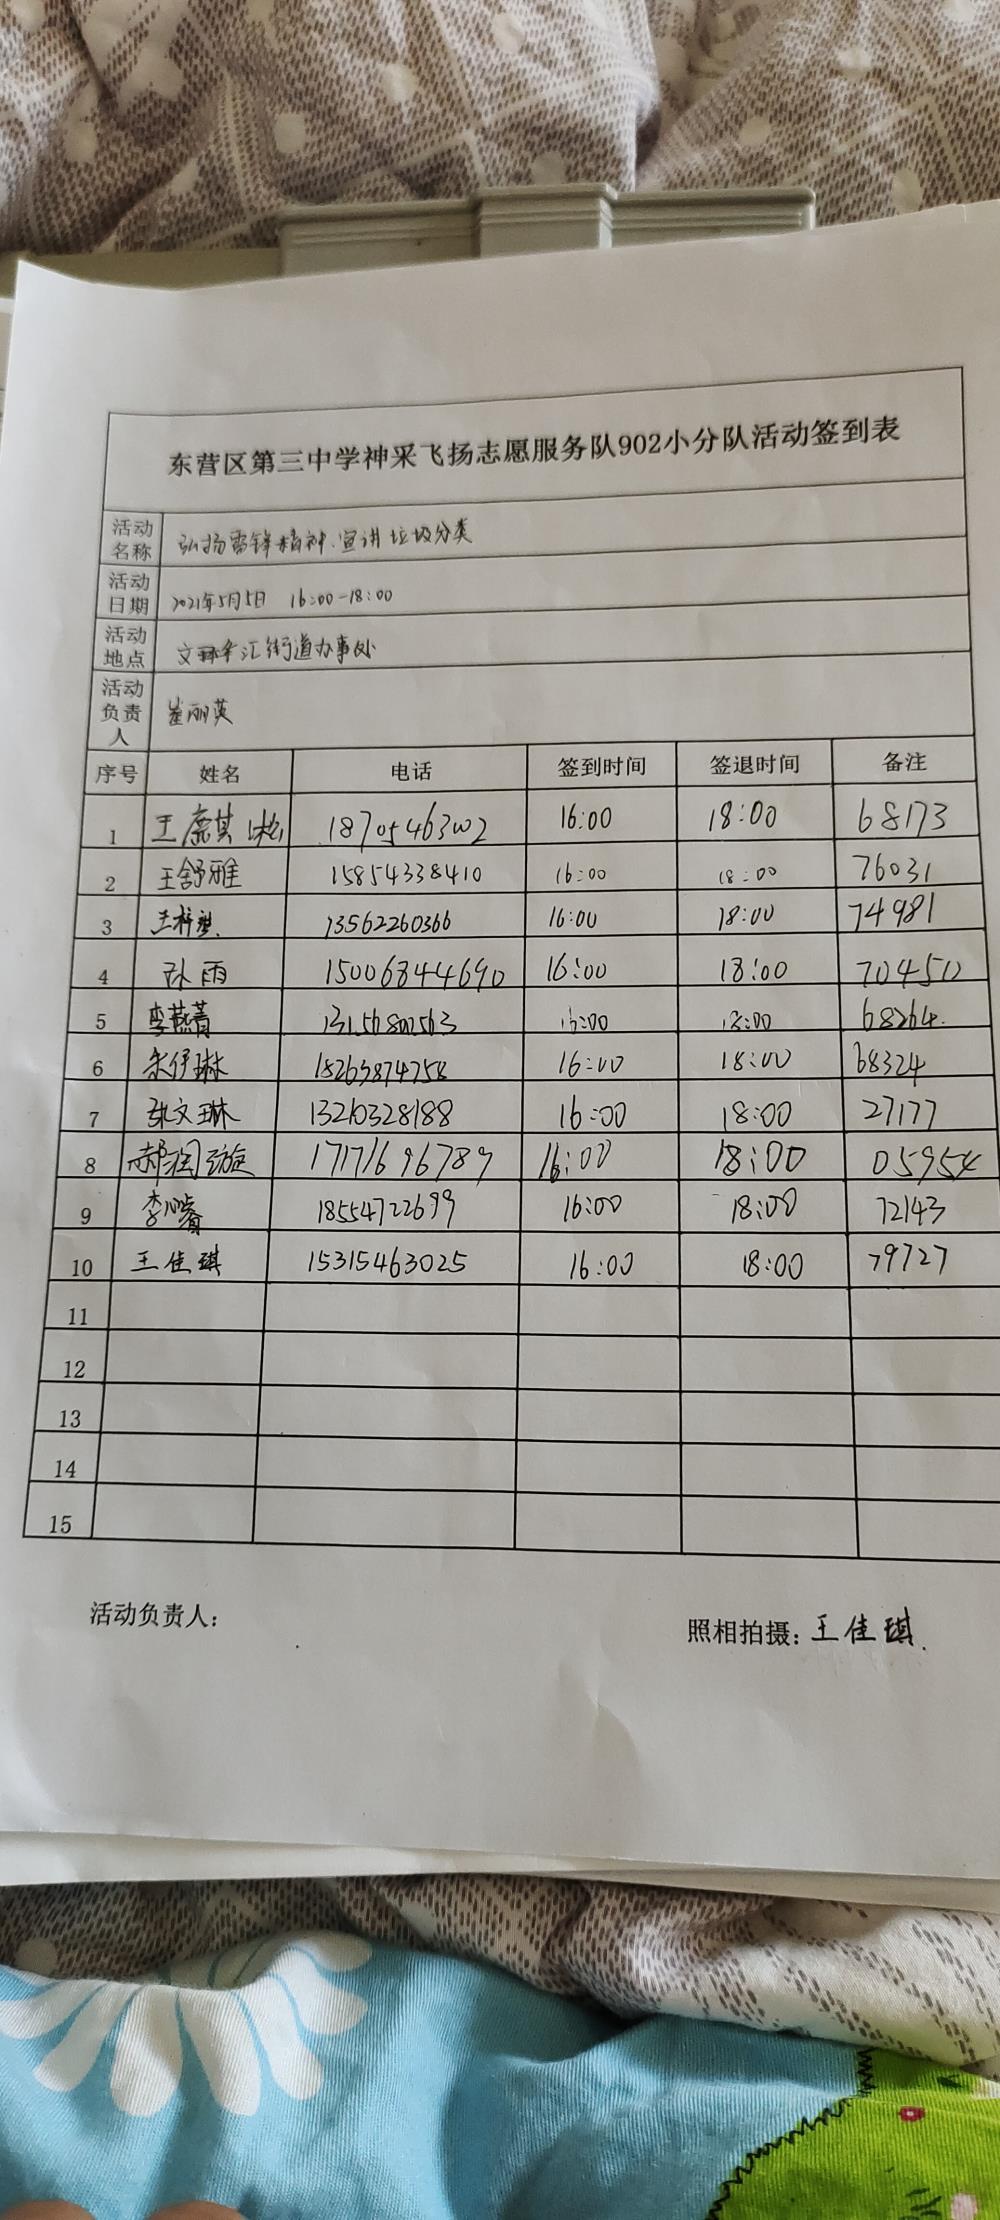 东营区第三中学神采飞扬志愿服务队902小分队活动签到表
活动名称 弘扬雷锋精神.宣讲垃圾分类
活动日期 2021年5月5日 16:00-18:00
活动地点 文汇街道办事处
活动负责人 崔丽英
序号 姓名 电话 签到时间 签退时间 备注
1 王 18705463002 16:00 18:00 68173
2 王舒雅 15854338410 16:00 18:00 76031
3 王梓琪 13562260366 16:00 18:00 74981
4 孙雨 15006844690 16:00 18:00 70450
5 李燕菁 13156802563 16:00 18:00 68264
6 朱伊琳 18263874758 16:00 18:00 68324
7 张文琳 13210328188 16:00 18:00 27177
8 郝润璇 17171696789 16:00 18:00 05954
9 李心睿 18554722699 16:00 18:00 72143
10 王佳琪 15315463025 16:00 18:00 79727
11
12
13
14
15
活动负责人: 照相拍摄: 王佳琪.